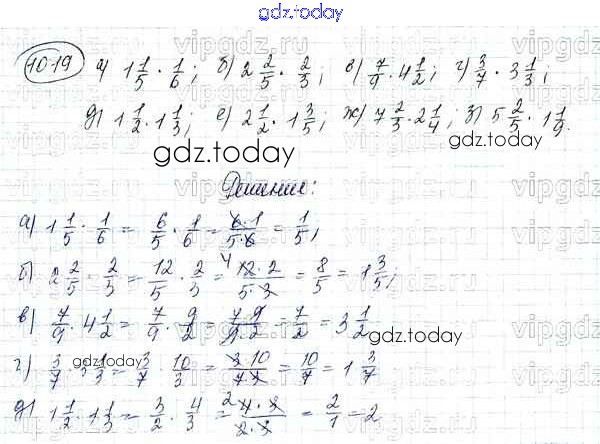 gdz.today
1019 а) 1 1/5 · 1/6; б) 2 2/5 · 2/3; в) 7/9 · 4 1/2; г) 3/7 · 3 1/3;
д) 1 1/2 · 1 1/3; е) 2 1/2 · 1 3/5; ж) 7 2/3 · 2 1/4; з) 5 2/5 · 1 1/9.
gdz.today
gdz.today
Решение:
а) 1 1/5 · 1/6 = 6/5 · 1/6 = 6·1/5·6 = 1/5;
б) 2 2/5 · 2/3 = 12/5 · 2/3 = 4 12·2/5·3 = 8/5 = 1 3/5;
в) 7/9 · 4 1/2 = 7/9 · 9/2 = 7·9/9·2 = 7/2 = 3 1/2
gdz.today
г) 3/7 · 3 1/3 = 3/7 · 10/3 = 3·10/7·3 = 10/7 = 1 3/7
gdz.today
д) 1 1/2 · 1 1/3 = 3/2 · 4/3 = 2 3·4/2·3 = 2/1 = 2
vipgdz